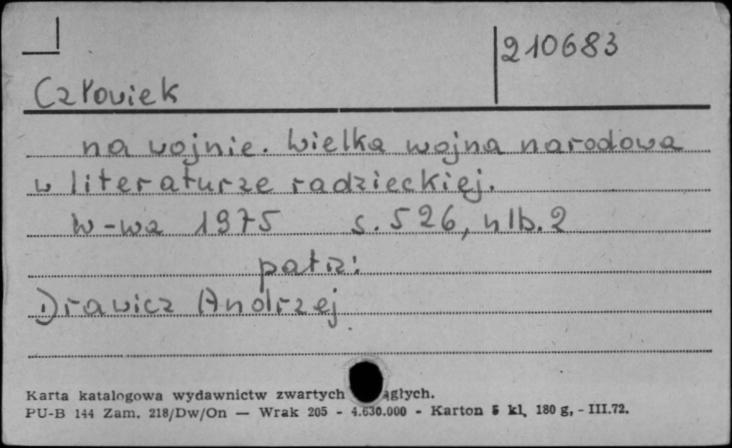 210683
Człowiek
na wojnie. Wielka wojna narodowa
w literaturze radzieckiej.
W-wa 1975 s. 526, nlb. 2
patrz:
Drawicz Andrzej
Karta katalogowa wydawnictw zwartych
PU-B 144 Zam. 218/Dw/On — Wrak 205 - 4.630.000 - Karton 5 kl, 180 g, - III.72.